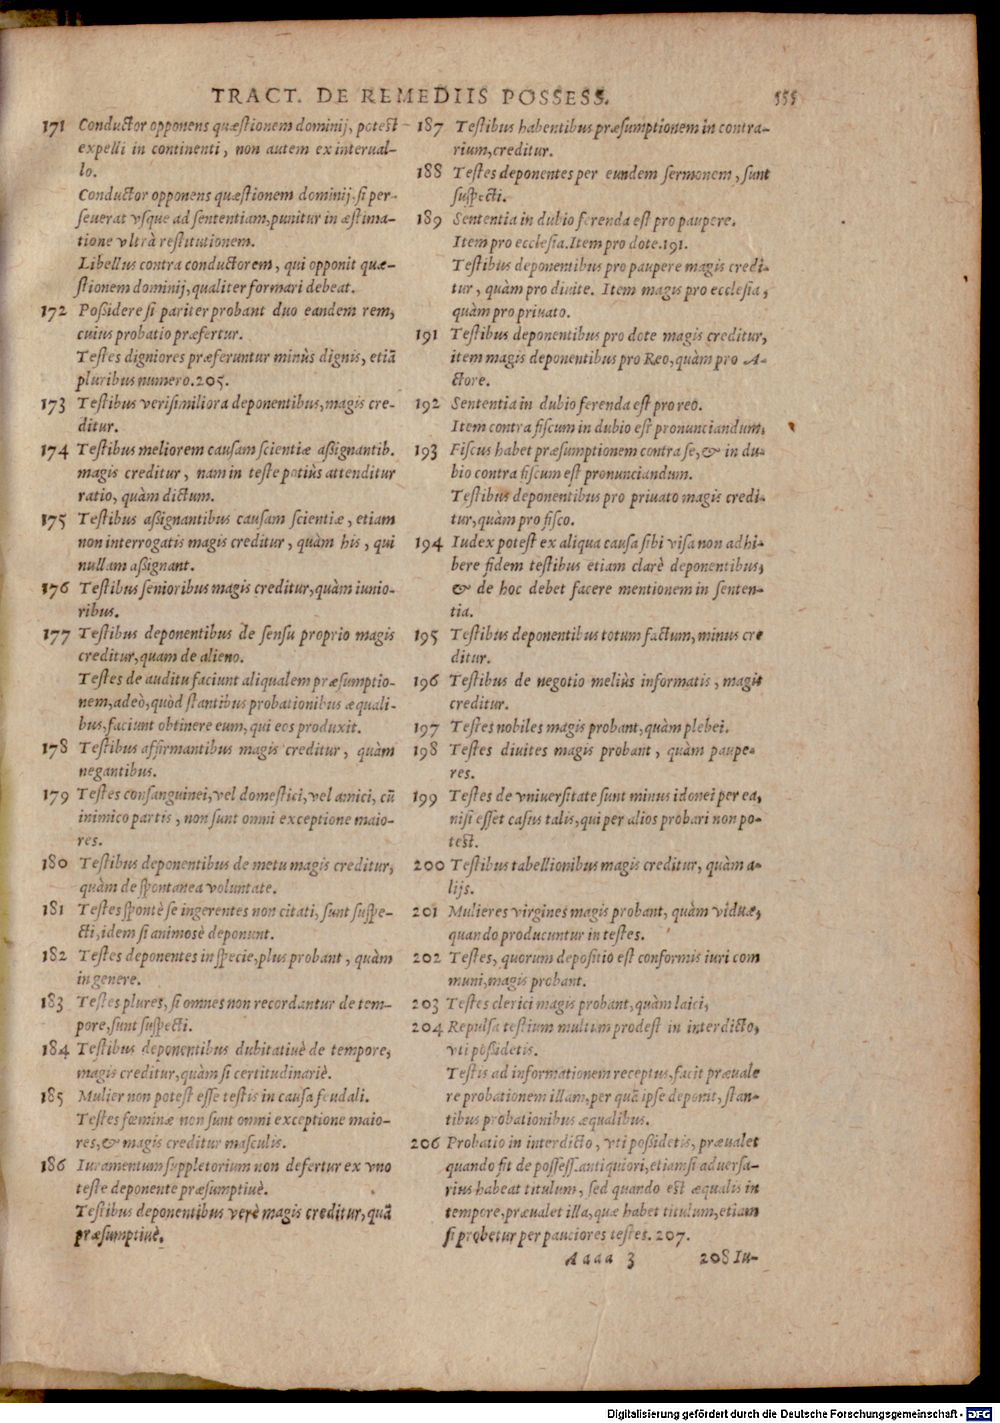 TRACT. DE REMEDIIS POSSESS. 555
171 Conductor opponens quæstionem dominij, potest
expelli in continenti, non autem ex interual-
lo.
Conductor opponens quæstionem dominij. si per-
seuerat vsque ad sententiam, punitur in æstima-
tione vltrà restitutionem.
Libellus contra conductorem, qui opponit quæ-
stionem dominij, qualiter formari debeat.
172 Possidere si pariter probant duo eandem rem,
cuius probatio præfertur.
Testes digniores præferuntur minùs dignis, etiā
pluribus numero. 205.
173 Testibus verisimiliora deponentibus, magis cre-
ditur.
174 Testibus meliorem causam scientiæ assignantib.
magis creditur, nam in teste potiùs attenditur
ratio, quàm dictum.
175 Testibus assignantibus causam scientiæ, etiam
non interrogatis magis creditur, quàm his, qui
nullam assignant.
176 Testibus senioribus magis creditur, quàm iunio-
ribus.
177 Testibus deponentibus de sensu proprio magis
creditur, quam de alieno.
Testes de auditu faciunt aliqualem præsumptio-
nem, adeò, quòd stantibus probationibus æquali-
bus, faciunt obtinere eum, qui eos produxit.
178 Testibus affirmantibus magis creditur, quàm
negantibus.
179 Testes consanguinei, vel domestici, vel amici, cū
inimico partis, non sunt omni exceptione maio-
res.
180 Testibus deponentibus de metu magis creditur,
quàm de spontanea voluntate.
181 Testes spontè se ingerentes non citati, sunt suspe-
cti, idem si animosè deponunt.
182 Testes deponentes in specie, plus probant, quàm
in genere.
183 Testes plures, si omnes non recordantur de tem-
pore, sunt suspecti.
184 Testibus deponentibus dubitatiuè de tempore,
magis creditur, quàm si certitudinariè.
185 Mulier non potest esse testis in causa feudali.
Testes fœminæ non sunt omni exceptione maio-
res, & magis creditur masculis.
186 Iuramentum suppletorium non defertur ex vno
teste deponente præsumptiuè.
Testibus deponentibus verè magis creditur, quā
præsumptiuè.
187 Testibus habentibus præsumptionem in contra-
rium, creditur.
188 Testes deponentes per eundem sermonem, sunt
suspecti.
189 Sententia in dubio ferenda est pro paupere.
Item pro ecclesia. Item pro dote. 191.
Testibus deponentibus pro paupere magis credi-
tur, quàm pro diuite. Item magis pro ecclesia,
quàm pro priuato.
191 Testibus deponentibus pro dote magis creditur,
item magis deponentibus pro Reo, quàm pro A-
ctore.
192 Sententia in dubio ferenda est pro reo.
Item contra fiscum in dubio est pronunciandum.
193 Fiscus habet præsumptionem contra se, & in du-
bio contra fiscum est pronunciandum.
Testibus deponentibus pro priuato magis credi-
tur, quàm pro fisco.
194 Iudex potest ex aliqua causa sibi visa non adhi-
bere fidem testibus etiam clarè deponentibus,
& de hoc debet facere mentionem in senten-
tia.
195 Testibus deponentibus totum factum, minus cre
ditur.
196 Testibus de negotio meliùs informatis, magis
creditur.
197 Testes nobiles magis probant, quàm plebei.
198 Testes diuites magis probant, quàm paupe-
res.
199 Testes de vniuersitate sunt minus idonei per ea,
nisi esset casus talis, qui per alios probari non po-
test.
200 Testibus tabellionibus magis creditur, quàm a-
lijs.
201 Mulieres virgines magis probant, quàm viduæ,
quando producuntur in testes.
202 Testes, quorum depositio est conformis iuri com
muni, magis probant.
203 Testes clerici magis probant, quàm laici,
204 Repulsa testium multum prodest in interdicto,
vti possidetis.
Testis ad informationem receptus, facit præuale
re probationem illam, per quā ipse deponit, stan-
tibus probationibus æqualibus.
206 Probatio in interdicto, vti possidetis, præualet
quando fit de possess. antiquiori, etiamsi aduersa-
rius habeat titulum, sed quando est æqualis in
tempore, præualet illa, quæ habet titulum, etiam
si probetur per pauciores testes. 207.
Aaaa 3 208 Iu-
Digitalisierung gefördert durch die Deutsche Forschungsgemeinschaft - DFG